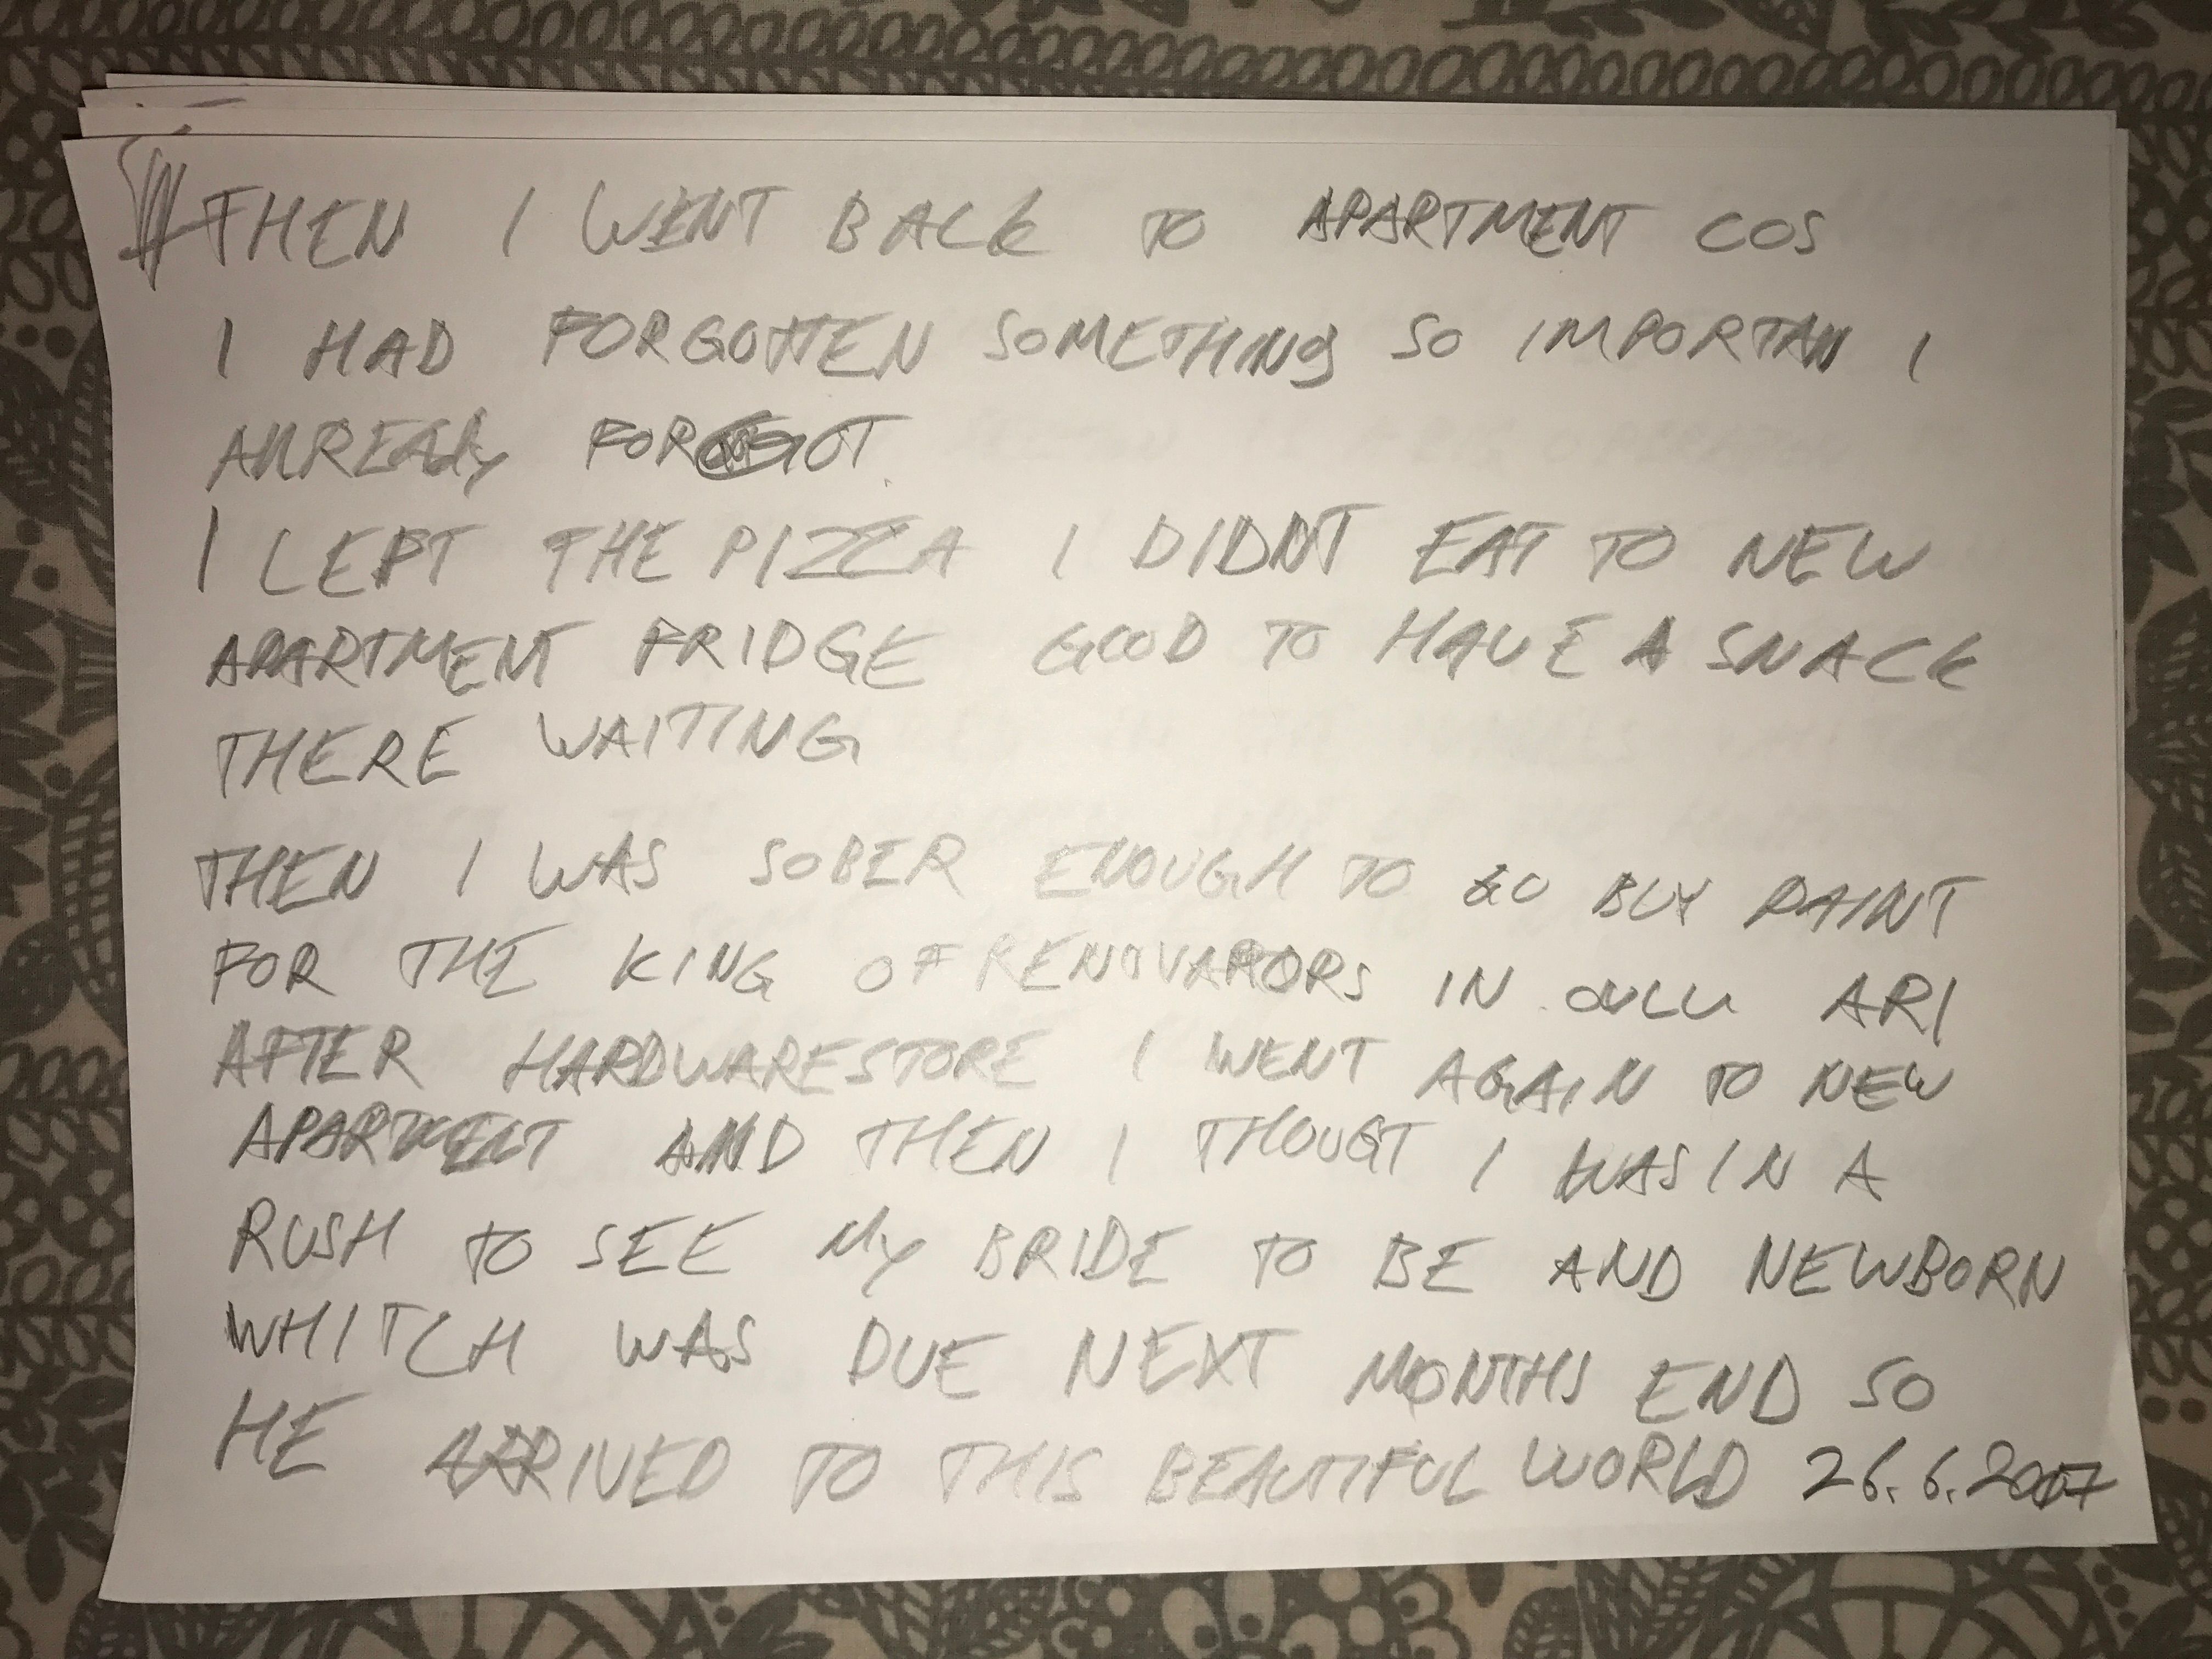 THEN I WENT BACK TO APARTMENT COS
I HAD FORGOTTEN SOMETHING SO IMPORTAN I
ALREADY FORGOT.
I LEFT THE PIZZA I DIDNT EAT TO NEW
APARTMENT FRIDGE GOOD TO HAVE A SNACK
THERE WAITING
THEN I WAS SOBER ENOUGH TO GO BUY PAINT
FOR THE KING OF RENOVATORS IN OULU ARI
AFTER HARDWARESTORE I WENT AGAIN TO NEW
APARTMENT AND THEN I THOUGT I WAS IN A
RUSH TO SEE My BRIDE TO BE AND NEWBORN
WHITCH WAS DUE NEXT MONTHS END SO
HE ARRIVED TO THIS BEAUTIFUL WORLD 26.6.2007